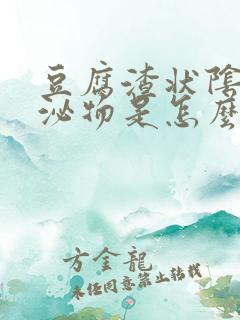 豆腐渣状陰
泌物是怎麼
方金龍
未经同意禁止转载